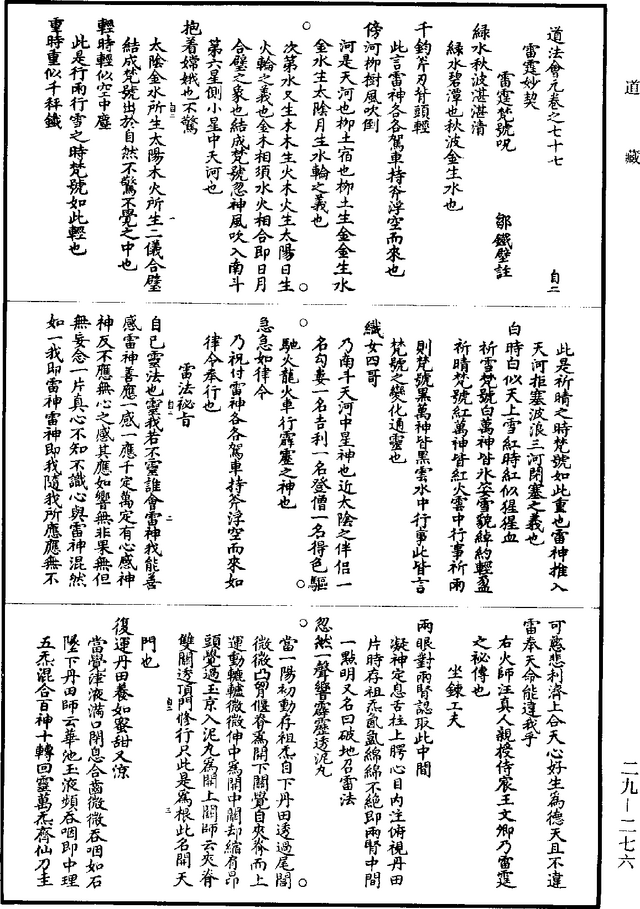 道藏
道法會元卷之七十七　自二
雷霆妙契
雷霆梵號呪　鄒鐵壁註
綠水秋波湛湛清
綠水碧潭也秋波金生水也
千鈞斧刃斧頭輕
此言雷神各各駕車持斧浮空而來也
傍河柳樹風吹倒
河是天河也柳土宿也柳土生金金生水
金水生太陰月生水輪之義也
次第水又生木木生火木火生太陽日生
火輪之義也金木相須水火相合即日月
合璧之象也結成梵號忽神風吹入南斗
第六星側小星中天河也
抱着嫦娥也不驚
太陰金水所生太陽木火所生二儀合璧
結成梵號出於自然不驚不覺之中也
輕時輕似空中塵
此是行雨行雪之時梵號如此輕也
重時重似千秤鐵
此是祈晴之時梵號如此重也雷神推入
天河拒塞波浪三河閉塞之義也
白時白似天上雪紅時紅似猩猩血
祈雪梵號白萬神皆氷姿雪貌綽約輕盈
祈晴梵號紅萬神皆紅火雲中行事祈雨
則梵號黑萬神皆黑雲水中行事此皆言
梵號之變化通靈也
織女四哥
乃南斗天河中星神也近太陰之伴侶一
名勾婁一名吉利一名登僧一名得色驅
馳火龍火車行霹靂之神也
急急如律令
乃祝付雷神各各駕車持斧浮空而來如
律令奉行也
雷法祕旨
自己靈法也靈我若不靈誰會雷神我能善
感雷神善應一感一應千定萬定有心感神
神反不應無心之感其應如響無非果無但
無妄念一片真心不知不識心與雷神混然
如一我即雷神雷神即我隨我所應應無不
可慈悲利濟上合天心好生為德天且不違
雷奉天命能違我乎
右火師汪真人親授侍宸王文卿乃雷霆
之祕傳也
坐鍊工夫
兩眼對兩腎認取此中間
凝神定息舌拄上腭心目內注俯視丹田
片時存祖炁氤氳綿綿不絕即兩腎中間
一點明又名曰破地召雷法
忽然一聲響霹靂透泥丸
當一陽初動存祖炁自下丹田透過尾閭
微微凸胷偃脊為開下關覺自夾脊而上
運動轆轤微微伸中為開中關却縮肩昂
頭覺過玉京入泥丸為關上關師云夾脊
雙關透頂門修行只此是為根此名開天
門也
復運丹田養如蜜甜又涼
當覺津液滿口閉息合齒微微吞咽如石
墜下丹田師云華池玉液頻吞咽即中理
五炁混合百神十轉回靈萬炁齊仙刀圭
二九—二七六